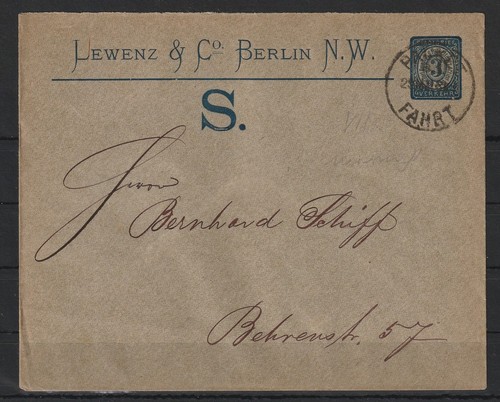 LEWENZ & Co. BERLIN N.W.
3
VERKEHR
FAHRT
S.
Herrn
Bernhard Schiff
Behrenstr. 57